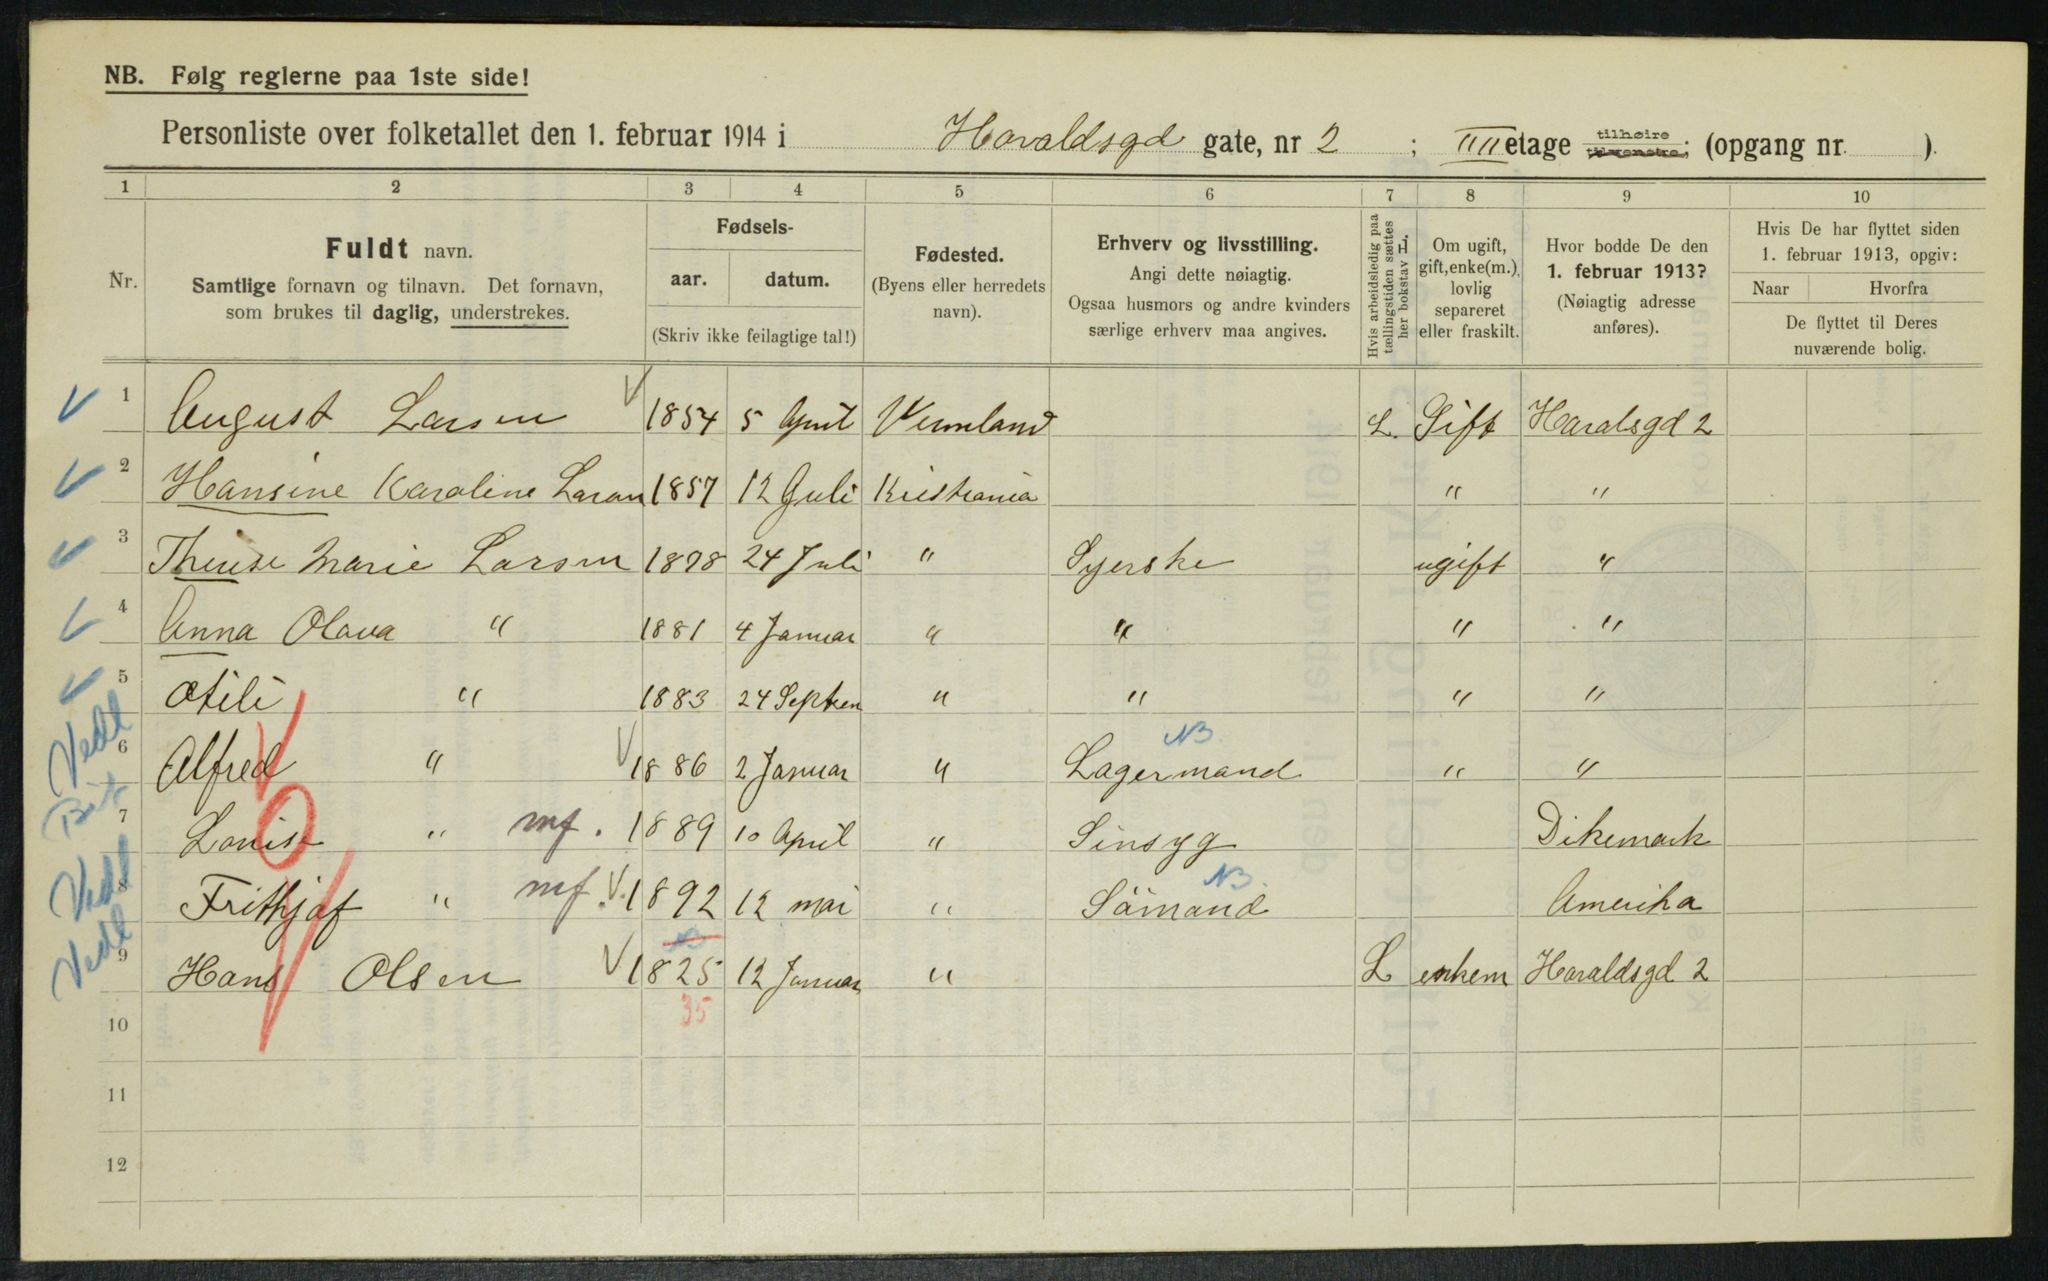 NB. Følg reglerne paa 1ste side!
Personliste over folketallet den 1. februar 1914 i Haraldsgd gate, nr 2 ; IIII etage tilhøire tilvenstre; (opgang nr. ).
1 2 3 4 5 6 7 8 9 10
Nr.
Fuldt navn.
Samtlige fornavn og tilnavn. Det fornavn,
som brukes til daglig, understrekes.
Fødsels-
aar. datum.
(Skriv ikke feilagtige tal!)
Fødested.
(Byens eller herredets
navn).
Erhverv og livsstilling.
Angi dette nøiagtig.
Ogsaa husmors og andre kvinders
særlige erhverv maa angives.
Hvis arbeidsledig paa
tællingstiden sættes
her bokstav L.
Om ugift,
gift, enke(m.),
lovlig
separeret
eller fraskilt.
Hvor bodde De den
1. februar 1913?
(Nøiagtig adresse
anføres).
Hvis De har flyttet siden
1. februar 1913, opgiv:
Naar Hvorfra
De flyttet til Deres
nuværende bolig.
1 August Larsen 1854 5 April Vermland L. Gift Haralsgd 2
2 Hansine Karoline Larsen 1857 12 Juli Kristiania " "
3 Therese Marie Larsen 1878 24 Juli " Syerske ugift "
4 Anna Olava " 1881 4 Januar " " " "
5 Otili " 1883 24 Septem " " " "
NB.
6 Alfred " 1886 2 Januar " Lagermand " "
7 Louise " mf. 1889 10 April " Sinsyg Dikemark
NB.
8 Frithjof " mf. 1892 12 mai " Sömand Amerika
9 Hans Olsen 1825 12 Januar " L enkem Haraldsgd 2
35
10
11
12
Vedl
Vedl
Vedl